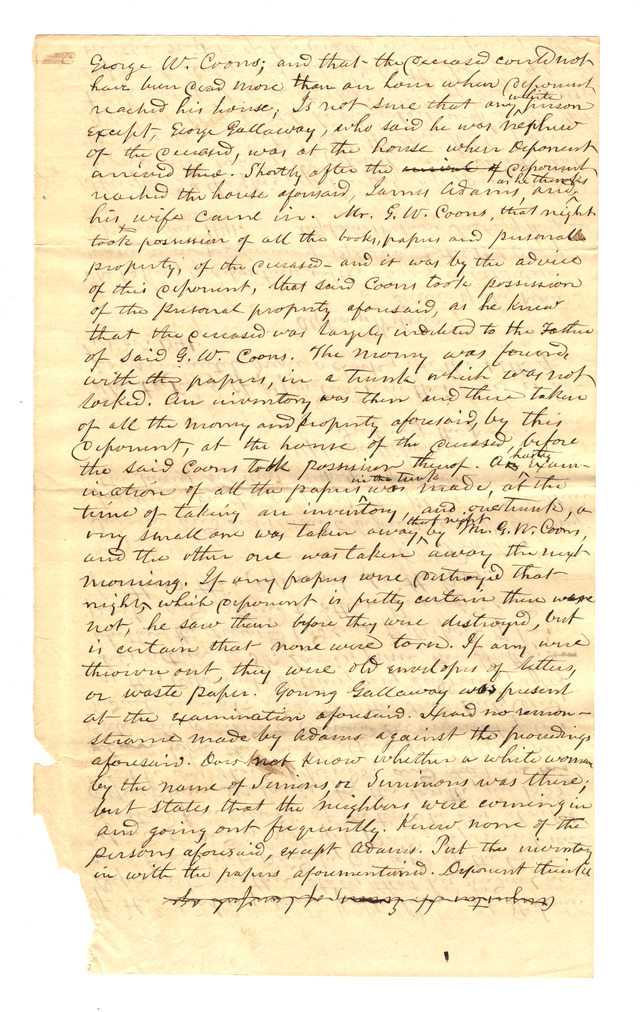 George W. Coons; and that the deceased could not
have been dead more than an hour when deponent
reached his house; Is not sure that any white person
except, George Gallaway, who said he was nephew
of the deceased, was at the house when Deponent
arrived there. Shortly after the arrival of deponent
reached the house aforesaid, James Adams, and, as he thinks
his wife came in. Mr. G. W. Coons, that night
took possession of all the books, papers and personal
property, of the deceased - and it was by the advice
of this deponent, that said Coons took possession
of the personal property aforesaid, as he knew
that the deceased was largely indebted to the Father
of said G. W. Coons. The money was found,
with the papers, in a trunk which was not
locked. An inventory was then and there taken
of all the money and property aforesaid, by this
Deponent, at the house of the deceased, before
the said Coons took possession thereof. A hasty exam-
ination of all the papers in the trunk was made, at the
time of taking an inventory, and one trunk, a
very small one was taken away that night by Mr. G. W. Coons,
and the other one was taken away the next
morning. If any papers were destroyed that
night, which deponent is pretty certain there were
not, he saw them before they were destroyed, but
is certain that none were torn. If any were
thrown out, they were old envelopes of letters,
or waste paper. Young Gallaway was present
at the examination aforesaid. Heard no remon-
strance made by Adams against the proceedings
aforesaid. Does not know whether a white woman
by the name of Simons, or Simmons was there;
but states that the neighbors were coming in
and going out frequently. Knew none of the
persons aforesaid, except Adams. Put the inventory
in with the papers aforementioned. Deponent thinks